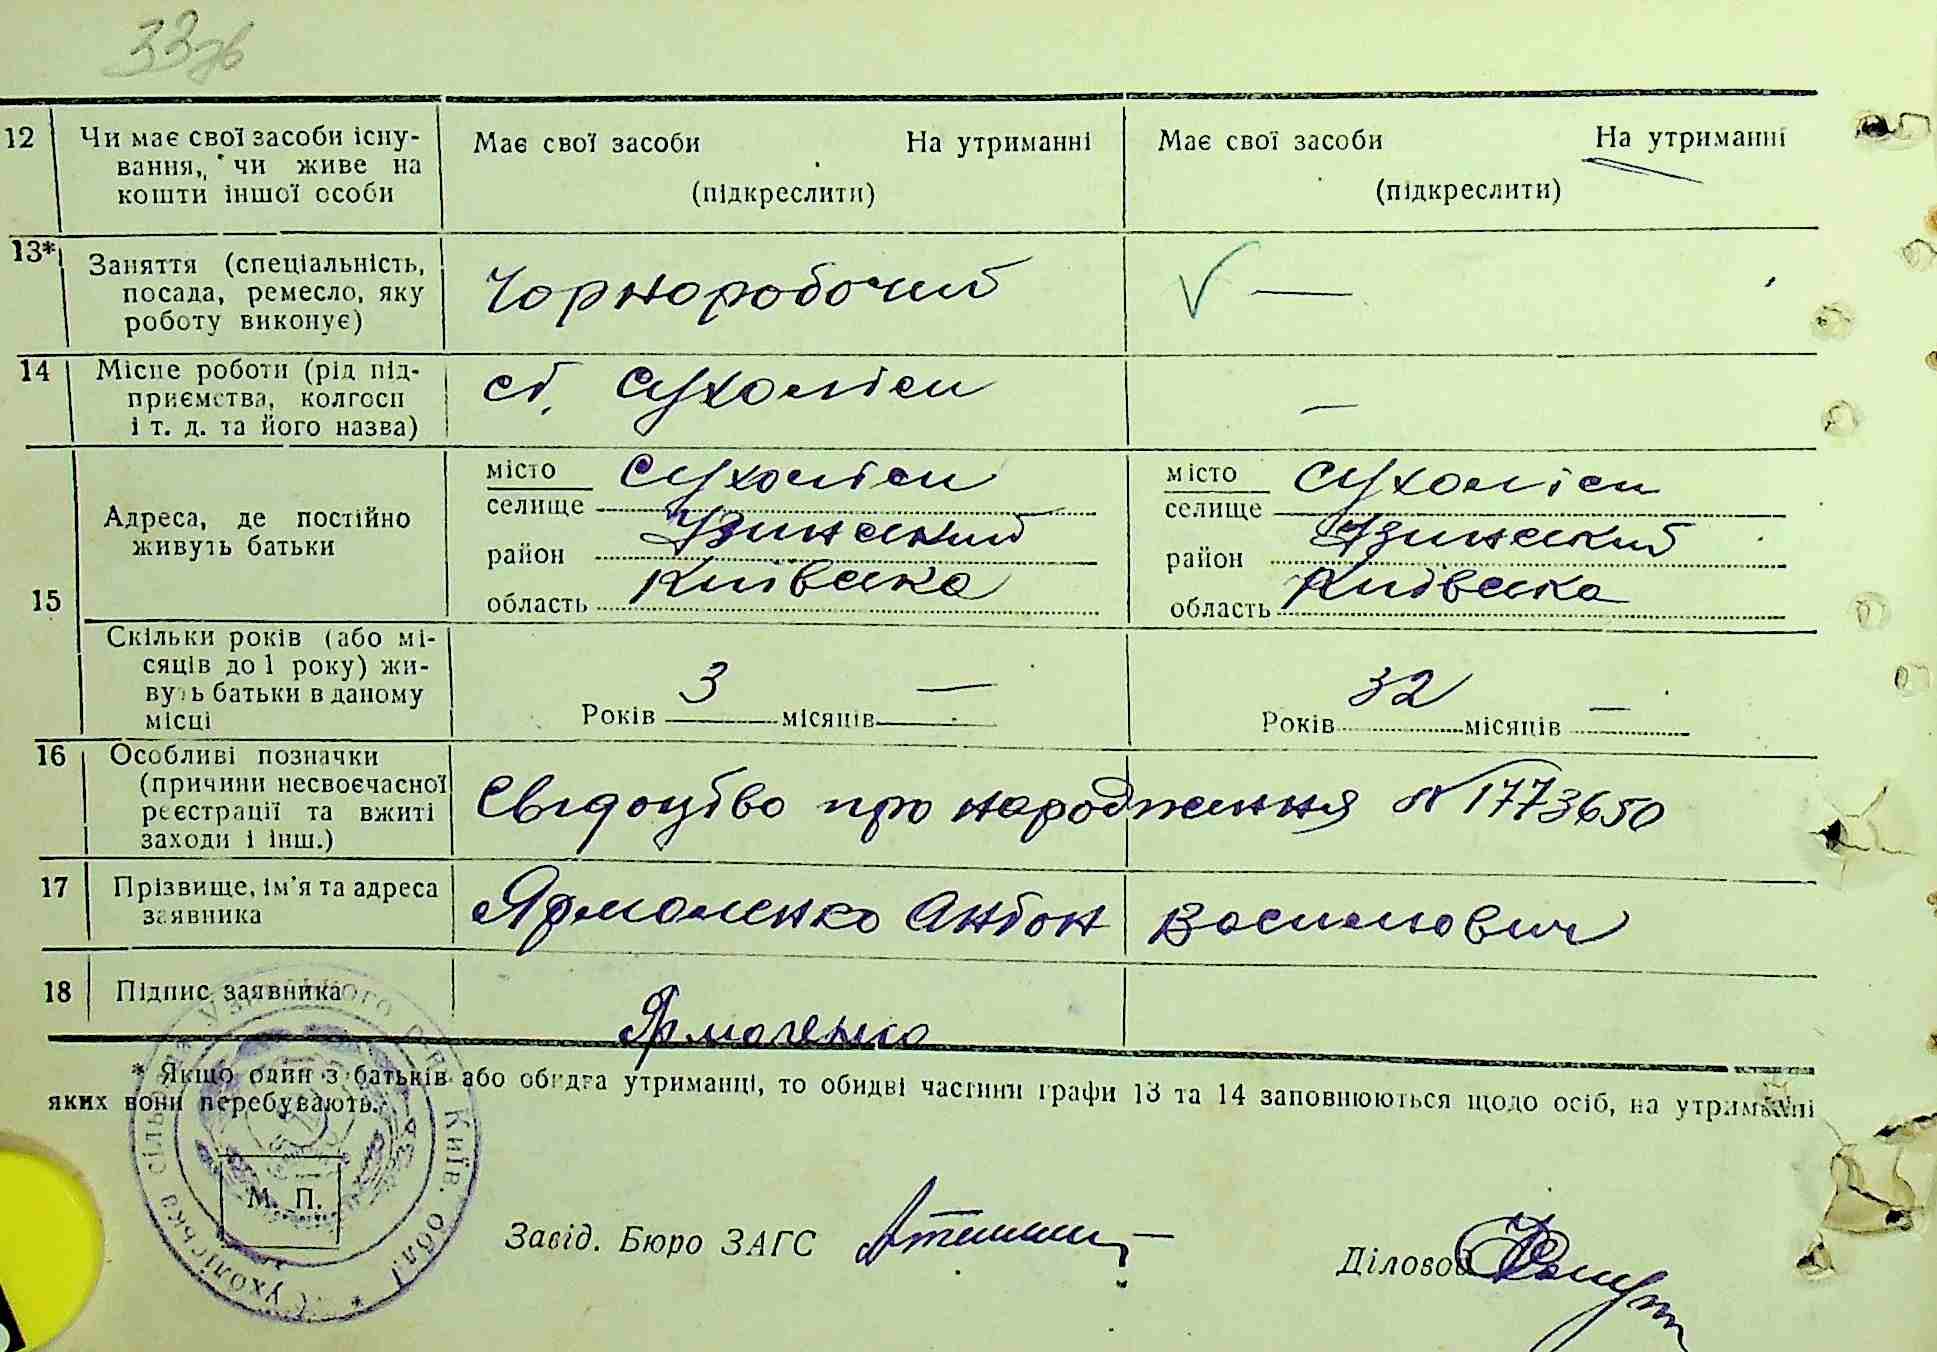 33зв
12 Чи має свої засоби існу-
вання, чи живе на
кошти іншої особи
Має свої засоби На утриманні
(підкреслити)
Має свої засоби На утриманні
(підкреслити)
13* Заняття (спеціальність,
посада, ремесло, яку
роботу виконує)
Чорноробочий
✓ —
14 Місце роботи (рід під-
приємства, колгосп
і т. д. та його назва)
ст. Сухоліси
—
15 Адреса, де постійно
живуть батьки
місто Сухоліси
селище
район Узинський
область Київська
місто Сухоліси
селище
район Узинський
область Київська
Скільки років (або мі-
сяців до 1 року) жи-
вуть батьки в даному
місці
Років 3 місяців —
Років 32 місяців —
16 Особливі позначки
(причини несвоєчасної
реєстрації та вжиті
заходи і інш.)
Свідоцтво про народження № 1773650
17 Прізвище, ім’я та адреса
заявника
Ярмоленко Антон Васильович
18 Підпис заявника
Ярмоленко
* Якщо один з батьків або обидва утриманці, то обидві частини графи 13 та 14 заповнюються щодо осіб, на утриманні
яких вони перебувають.
М. П.
Завід. Бюро ЗАГС
Діловод